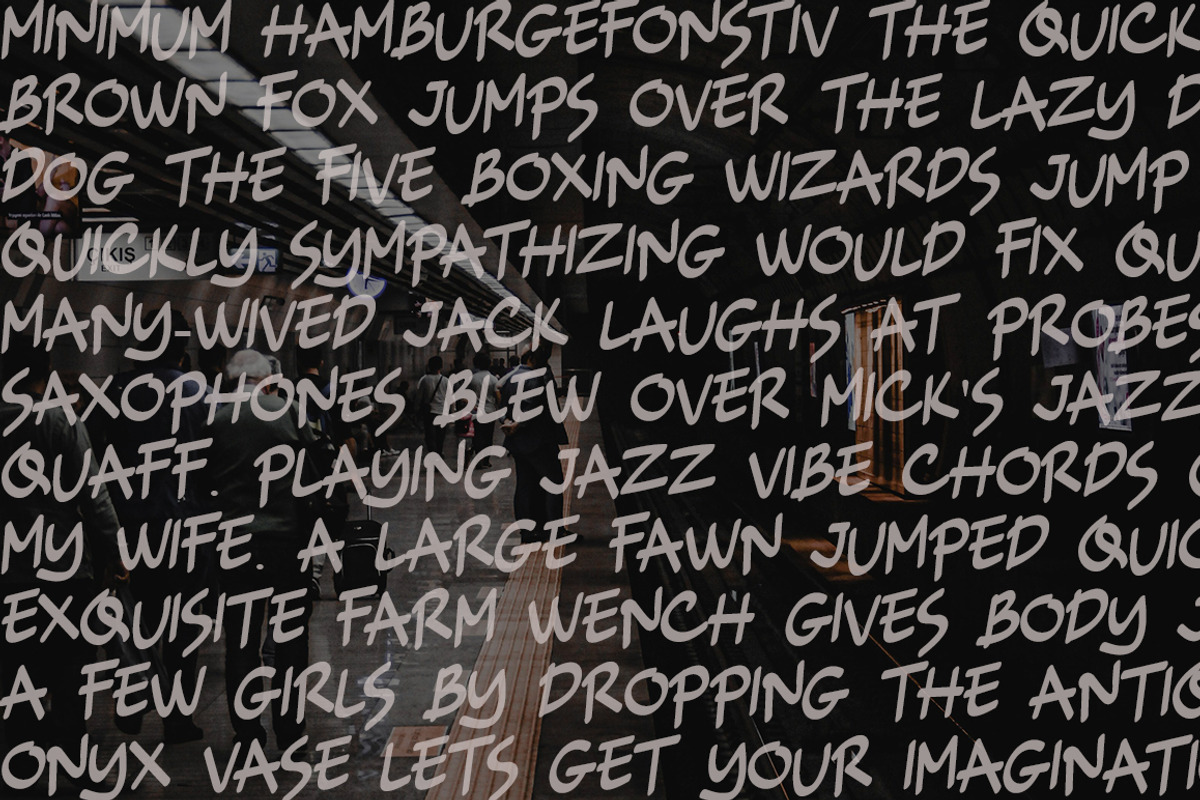 MINIMUM HAMBURGEFONSTIV THE QUICK
BROWN FOX JUMPS OVER THE LAZY D
DOG THE FIVE BOXING WIZARDS JUMP
QUICKLY SYMPATHIZING WOULD FIX QU
MANY-WIVED JACK LAUGHS AT PROBES
SAXOPHONES BLEW OVER MICK'S JAZZ
QUAFF. PLAYING JAZZ VIBE CHORDS
MY WIFE. A LARGE FAWN JUMPED QUIC
EXQUISITE FARM WENCH GIVES BODY J
A FEW GIRLS BY DROPPING THE ANTIQ
ONYX VASE LETS GET YOUR IMAGINATI
ÇIKIS
EXIT